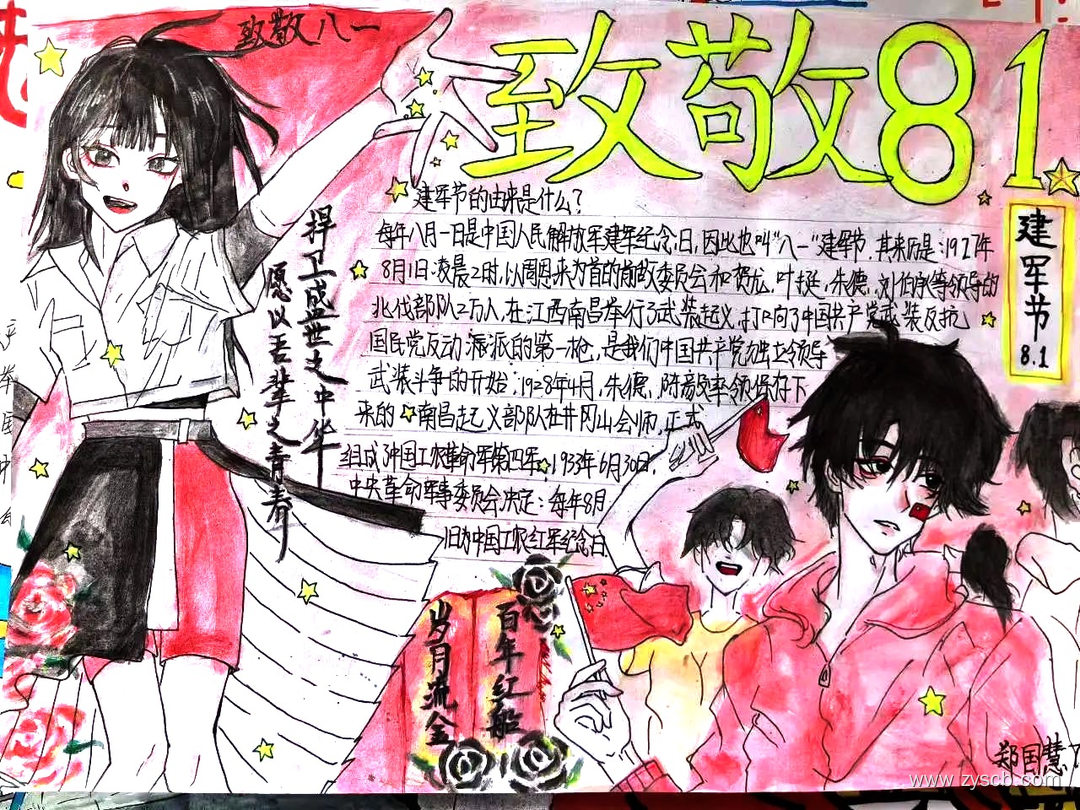 致敬八一
致敬81
建军节
8.1
建军节的由来是什么?
每年八月一日是中国人民解放军建军纪念日,因此也叫“八一”建军节.其来历是:1927年
8月1日凌晨2时,以周恩来为首的前敌委员会和贺龙,叶挺,朱德,刘伯承等领导的
北伐部队2万人,在江西南昌举行了武装起义.打响了中国共产党武装反抗
国民党反动派的第一枪,是我们中国共产党独立领导
武装斗争的开始;1928年4月,朱德,陈毅率领保存下
来的南昌起义部队在井冈山会师,正式
组成了中国工农革命军第四军.1933年6月30日,
中央革命军事委员会决定:每年8月
1日为中国工农红军纪念日.
捍卫盛世之中华
愿以吾辈之青春
百年红船
岁月流金
郑国慧
www.zyscb.com